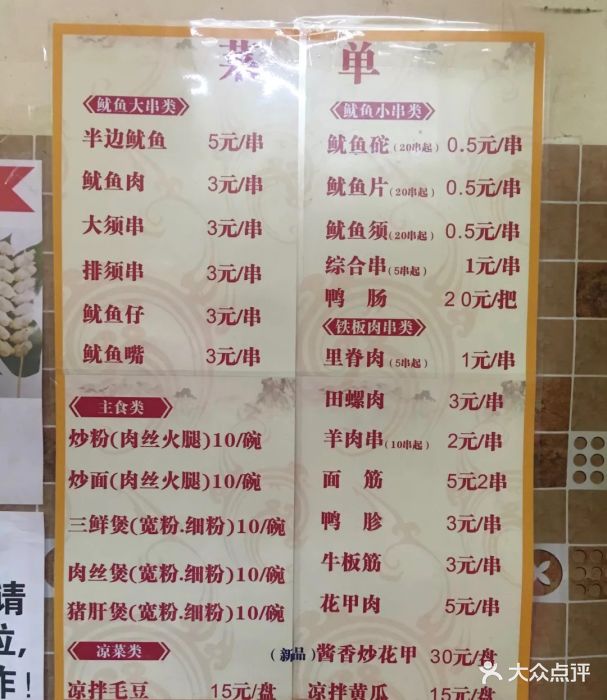 菜 单
鱿鱼大串类
半边鱿鱼 5元/串
鱿鱼肉 3元/串
大须串 3元/串
排须串 3元/串
鱿鱼仔 3元/串
鱿鱼嘴 3元/串
主食类
炒粉(肉丝火腿)10/碗
炒面(肉丝火腿)10/碗
三鲜煲(宽粉.细粉)10/碗
肉丝煲(宽粉.细粉)10/碗
猪肝煲(宽粉.细粉)10/碗
凉菜类
凉拌毛豆 15元/盘
鱿鱼小串类
鱿鱼砣(20串起) 0.5元/串
鱿鱼片(20串起) 0.5元/串
鱿鱼须(20串起) 0.5元/串
综合串(5串起) 1元/串
鸭 肠 20元/把
铁板肉串类
里脊肉(5串起) 1元/串
田螺肉 3元/串
羊肉串(10串起) 2元/串
面 筋 5元2串
鸭 胗 3元/串
牛板筋 3元/串
花甲肉 5元/串
(新品)酱香炒花甲 30元/盘
凉拌黄瓜 15元/盘
请
位,
作!
大众点评